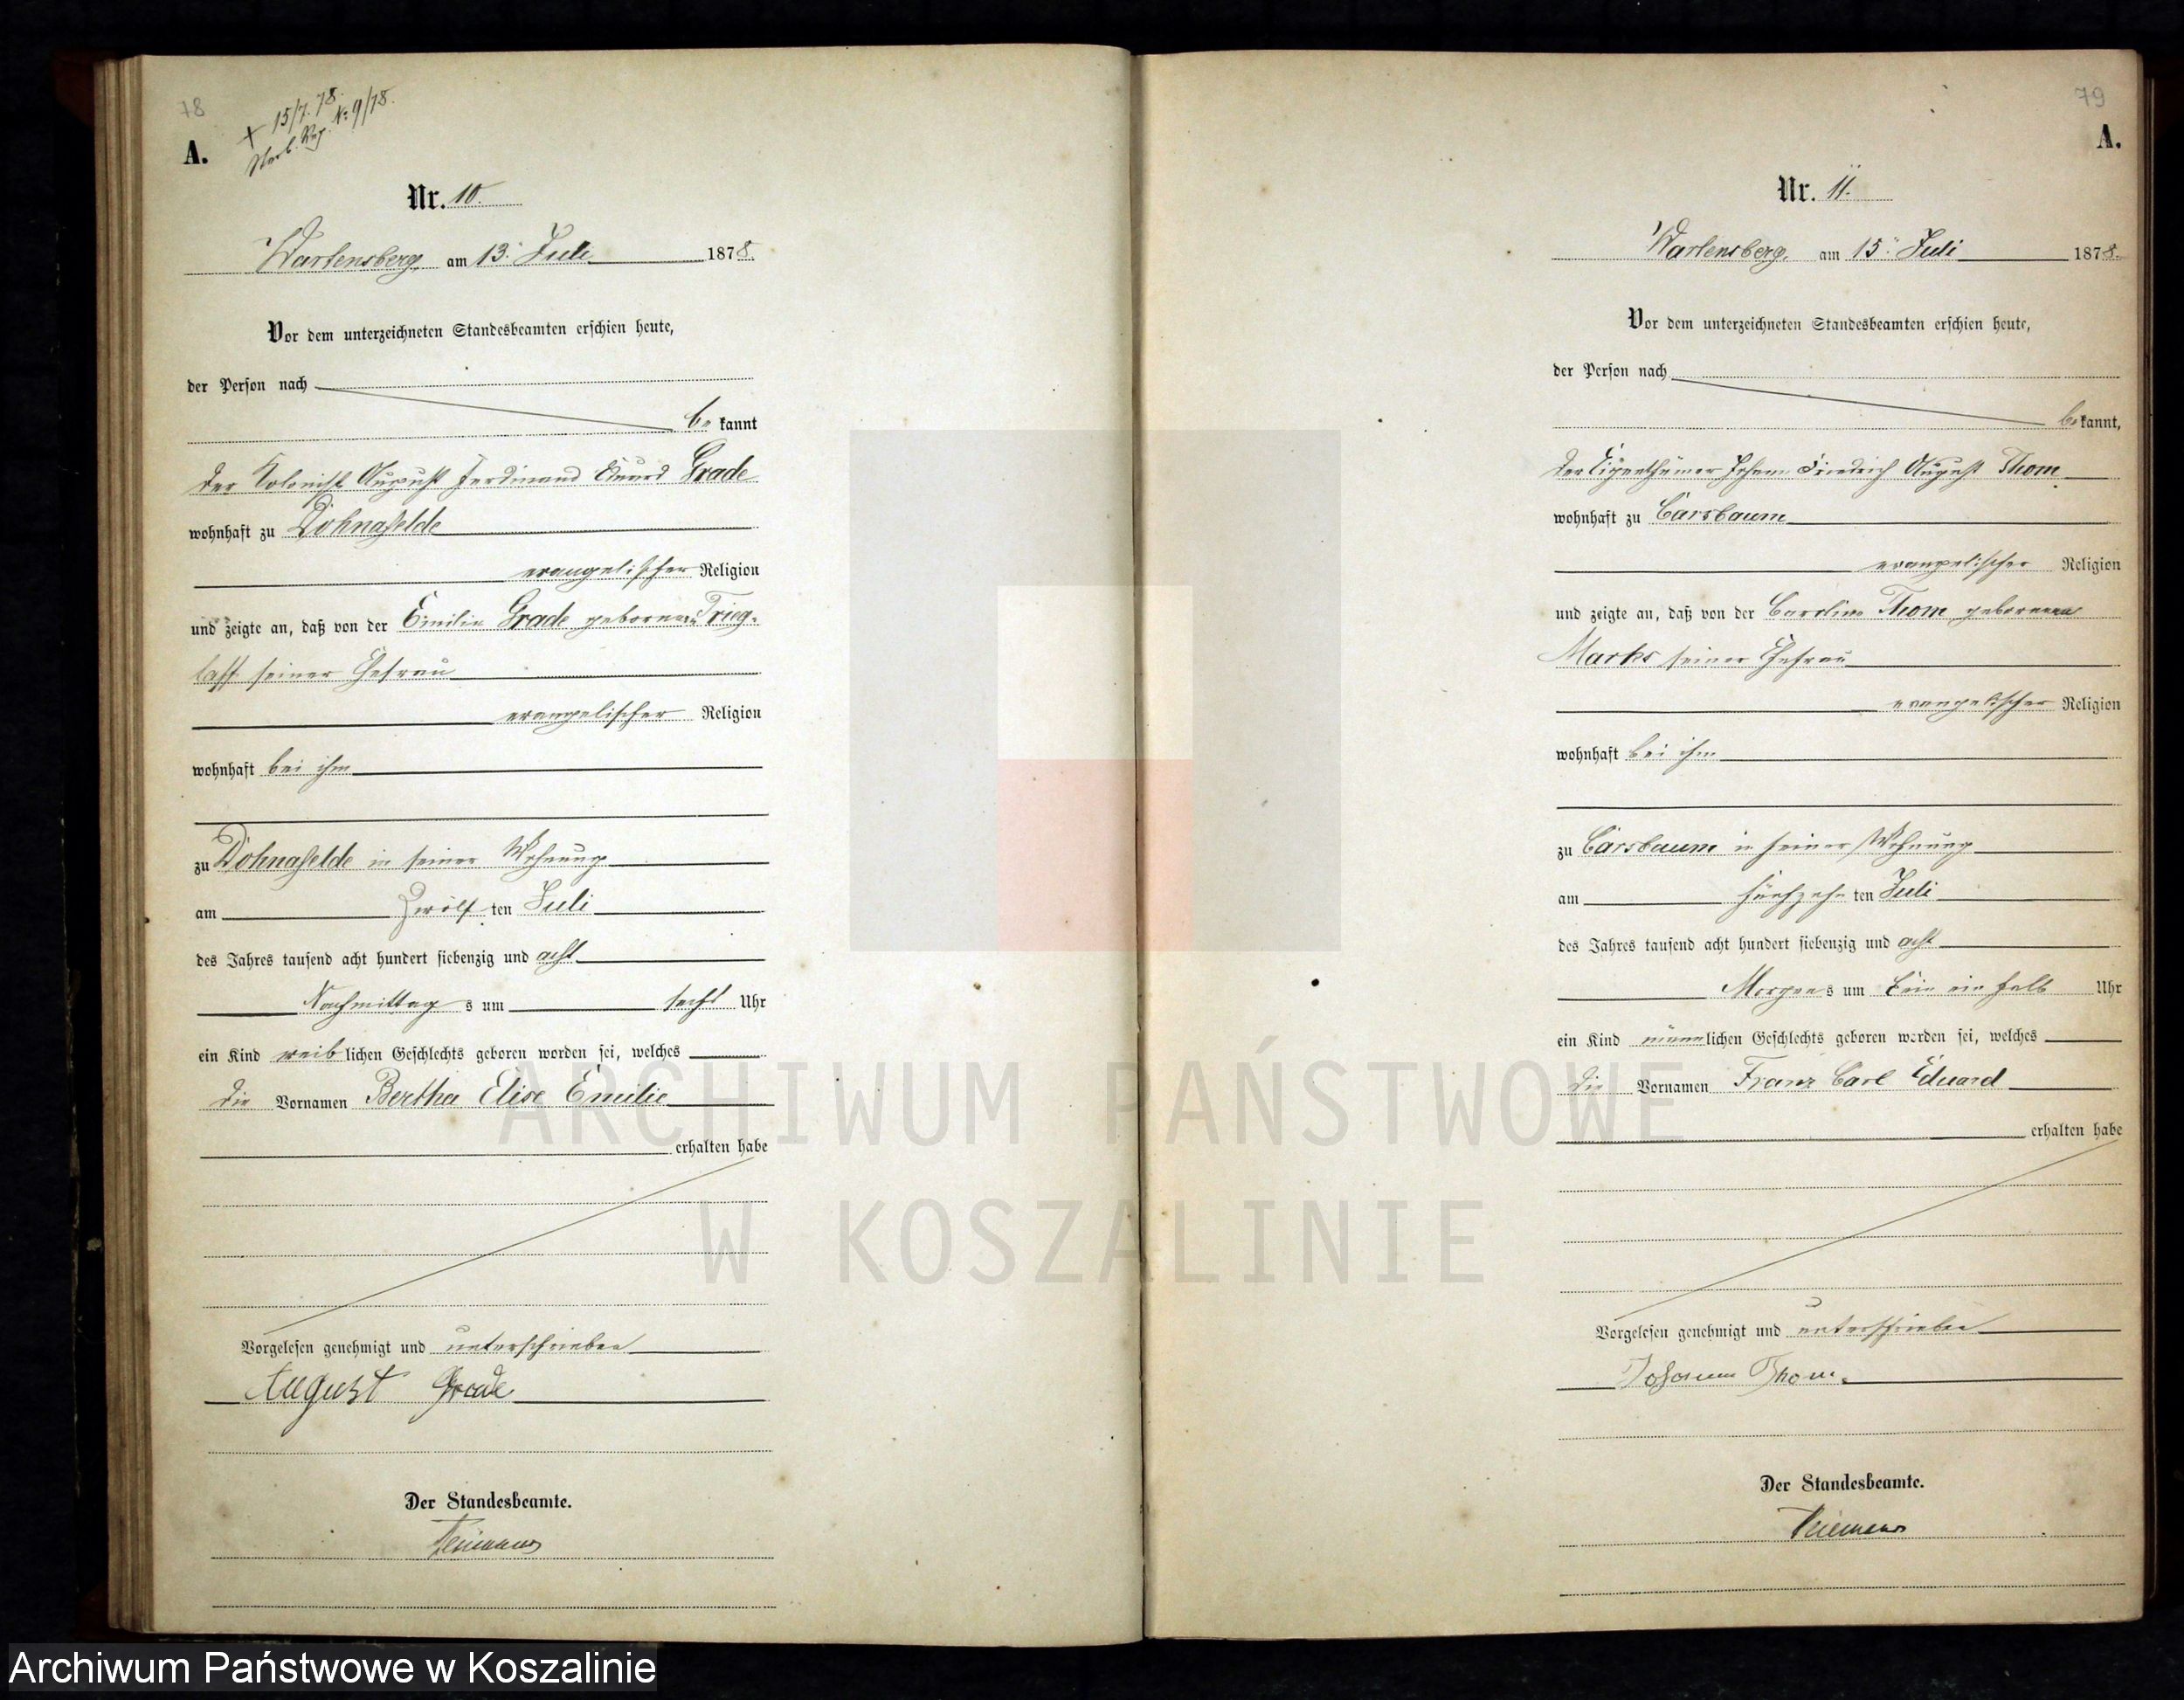 78
+ 15/7. 78.
Sterb. Reg. No 9/78.
A.
Nr. 10.
Wartensberg, am 13. Juli 1878.
Vor dem unterzeichneten Standesbeamten erschien heute,
der Person nach
be kannt
der Kolonist August Ferdinand Eduard Grade
wohnhaft zu Dohnafelde
evangelischer Religion
und zeigte an, daß von der Emilie Grade geborenen Trieg-
laff seiner Ehefrau
evangelischer Religion
wohnhaft bei ihm
zu Dohnafelde in seiner Wohnung
am zwölf ten Juli
des Jahres tausend acht hundert siebenzig und acht
Nachmittag s um sechs Uhr
ein Kind weib lichen Geschlechts geboren worden sei, welches
die Vornamen Bertha Elise Emilie
erhalten habe
Vorgelesen genehmigt und unterschrieben
August Grade
Der Standesbeamte.
79
A.
Nr. 11.
Wartensberg, am 15. Juli 1878.
Vor dem unterzeichneten Standesbeamten erschien heute,
der Person nach
be kannt,
der Eigenthümer Johann Friedrich August Thom
wohnhaft zu Carsbaum
evangelischer Religion
und zeigte an, daß von der Caroline Thom geborenen
Marks seiner Ehefrau
evangelischer Religion
wohnhaft bei ihm
zu Carsbaum in seiner Wohnung
am fünfzehn ten Juli
des Jahres tausend acht hundert siebenzig und acht
Morgen s um ein halb Uhr
ein Kind männ lichen Geschlechts geboren worden sei, welches
die Vornamen Franz Carl Eduard
erhalten habe
Vorgelesen genehmigt und unterschrieben
Johann Thom.
Der Standesbeamte.
ARCHIWUM PAŃSTWOWE
W KOSZALINIE
Archiwum Państwowe w Koszalinie